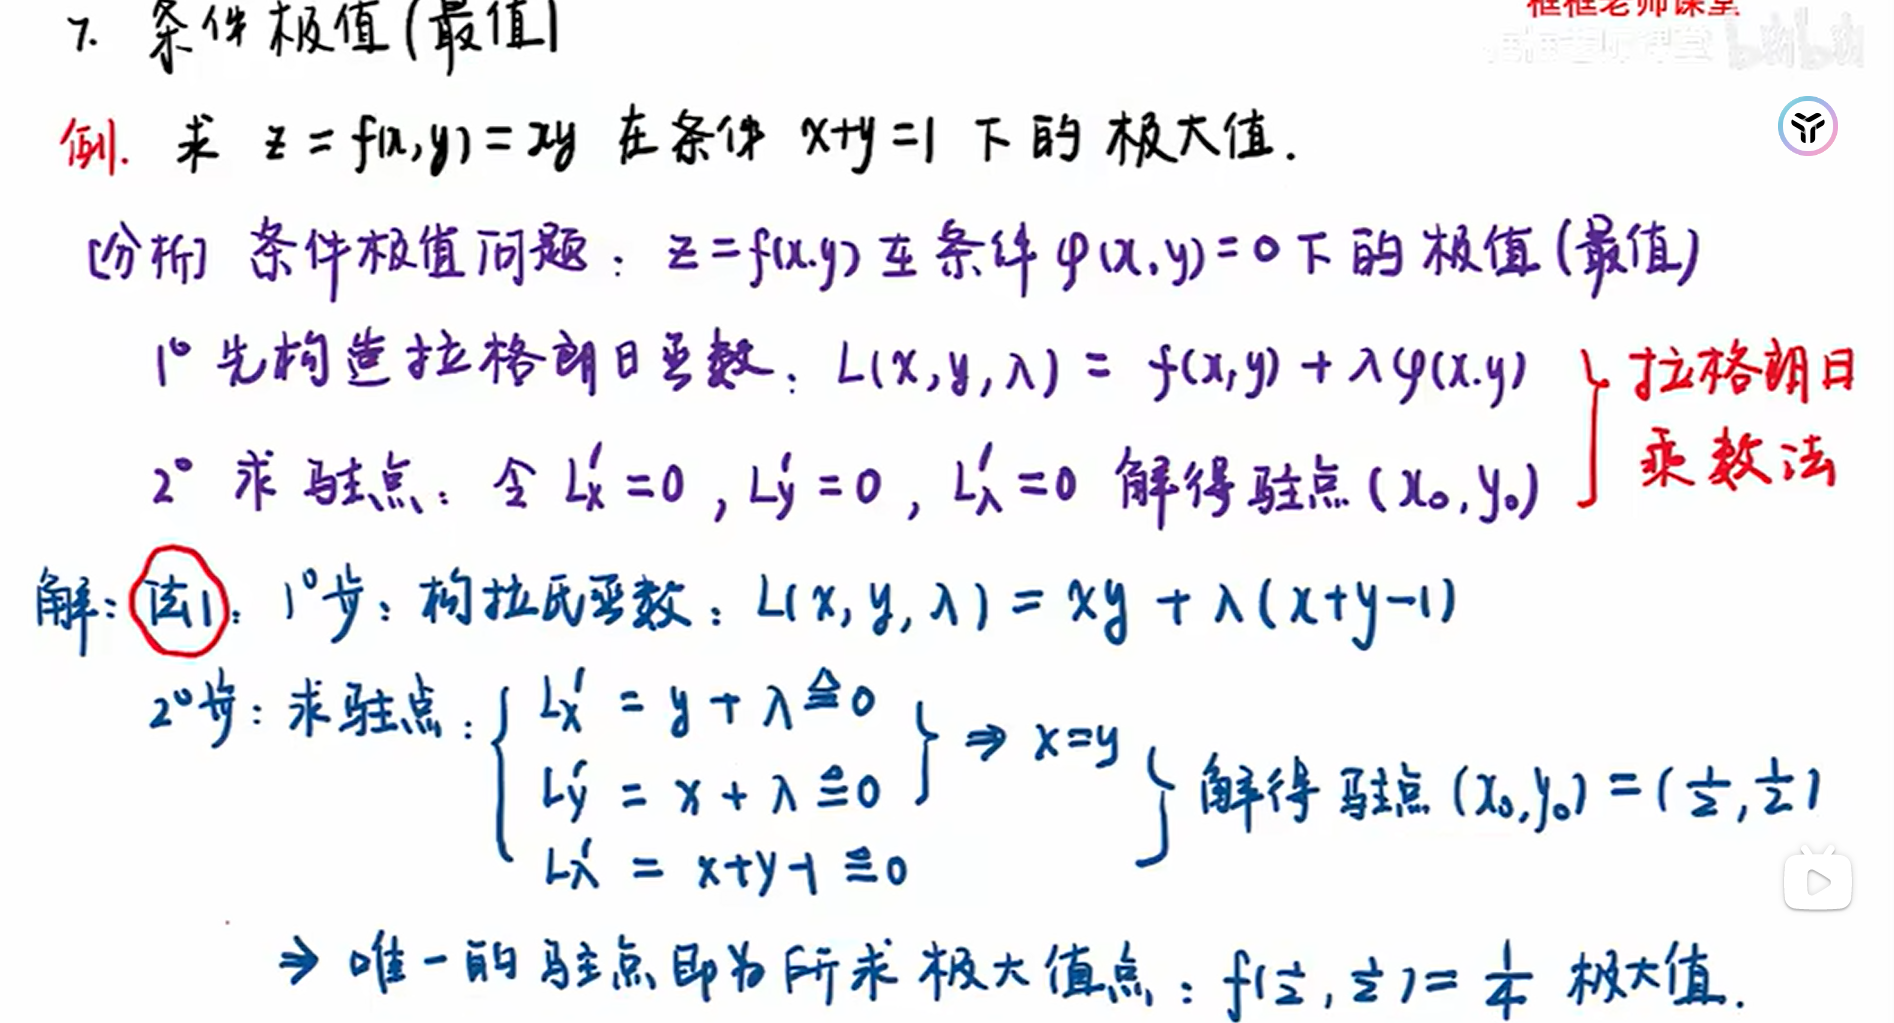 框框老师课堂
框框老师课堂 bilibili
7. 条件极值(最值)
例. 求 z = f(x,y) = xy 在条件 x+y=1 下的极大值.
[分析] 条件极值问题: z=f(x.y) 在条件 φ(x,y)=0 下的极值(最值)
1° 先构造拉格朗日函数: L(x,y,λ) = f(x,y) + λφ(x.y)
2° 求驻点: 令 Lx′=0, Ly′=0, Lλ′=0 解得驻点(x₀,y₀)
} 拉格朗日
乘数法
解: 法1: 1°步: 构拉氏函数: L(x,y,λ) = xy + λ(x+y-1)
2°步: 求驻点: { Lx′ = y + λ ≙ 0
Ly′ = x + λ ≙ 0 } ⇒ x=y
Lλ′ = x+y-1 ≙ 0 } 解得驻点 (x₀,y₀) = (1/2, 1/2)
⇒ 唯一的驻点即为所求极大值点: f(1/2, 1/2) = 1/4 极大值.